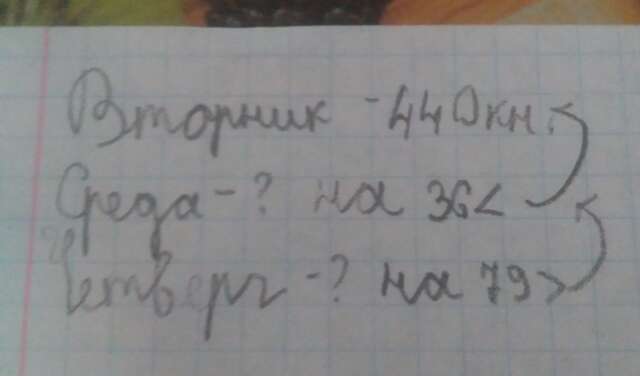 Вторник - 440 кн.
Среда - ? на 36 <
Четверг - ? на 79 >